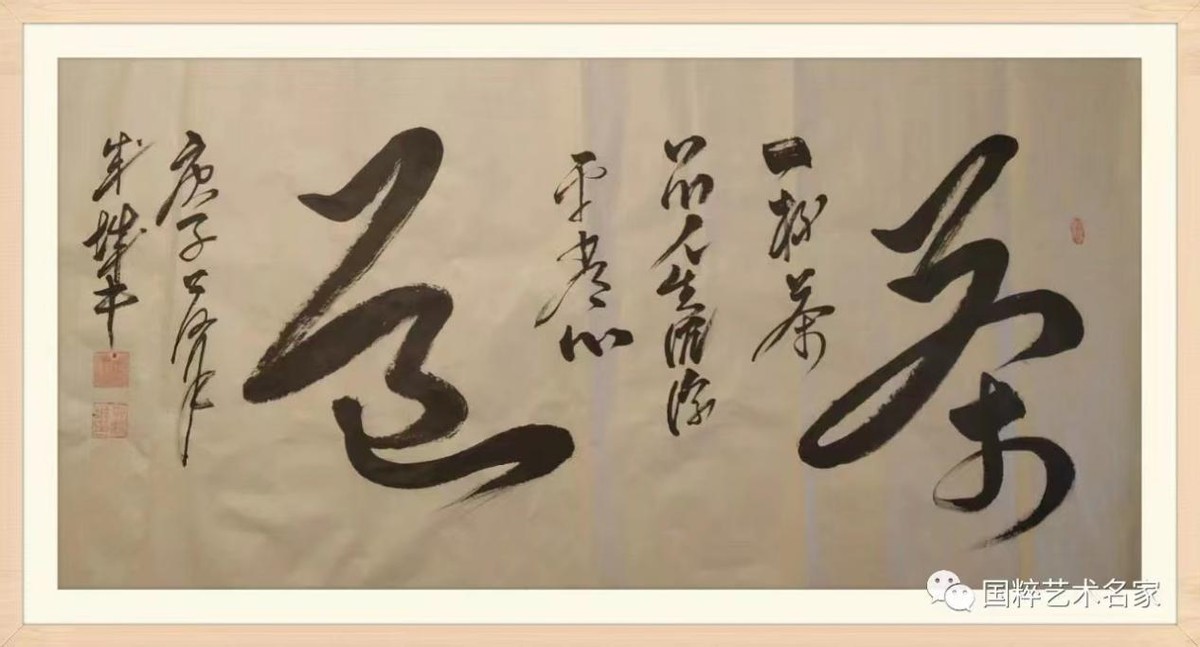 茶
一杯茶
品人生沉浮
平常心
道
庚子
国粹艺术名家